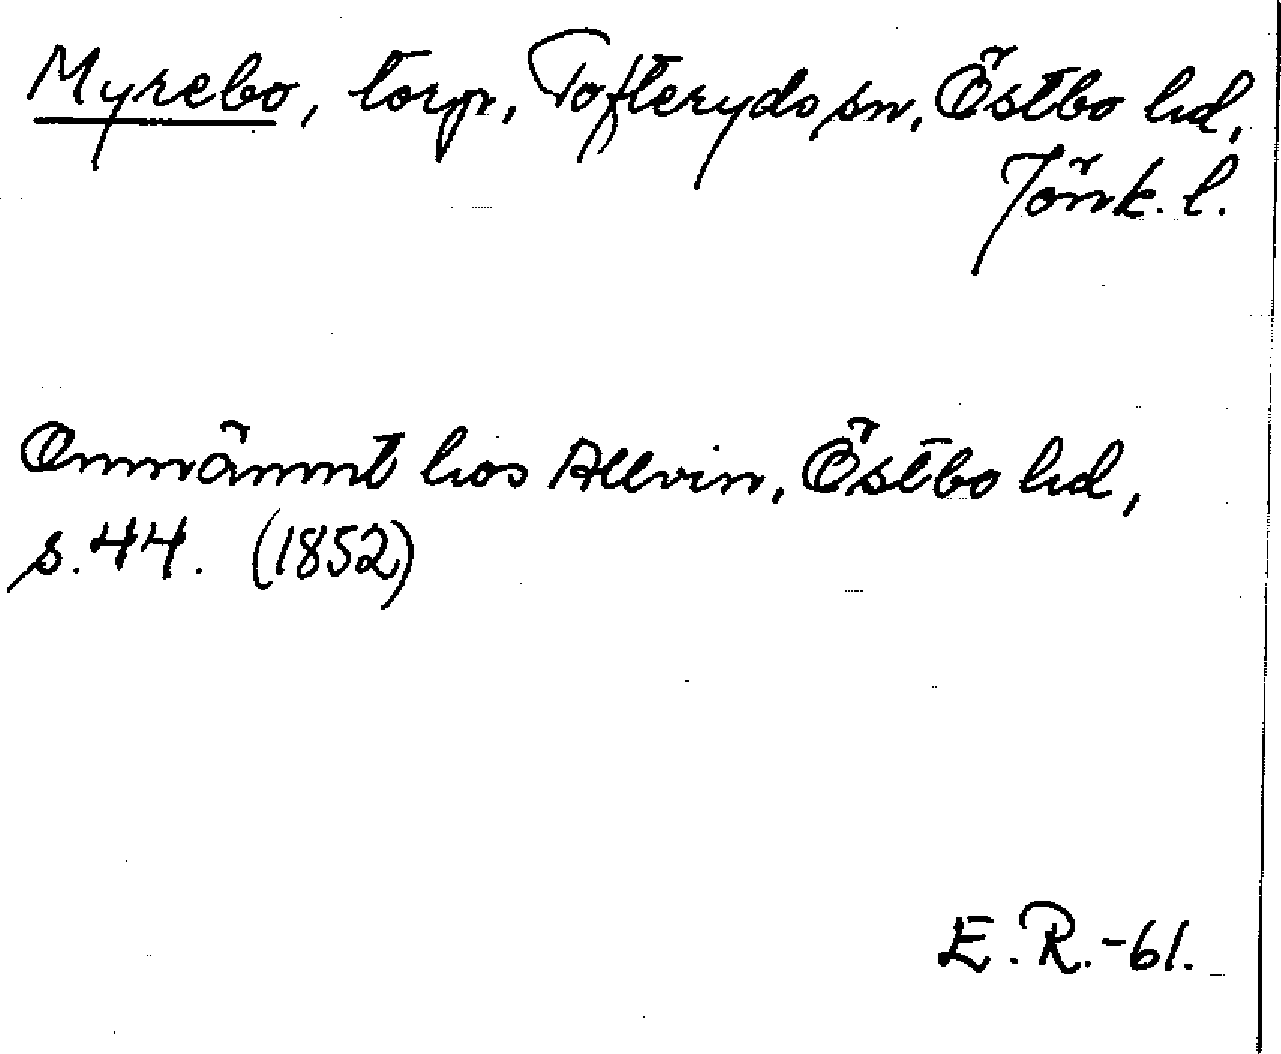 Myrebo, torp, Tofteryds sn, Östbo hd,
Jönk. l.
Omnämnt hos Allvin, Östbo hd,
s. 44. (1852)
E. R. -61.